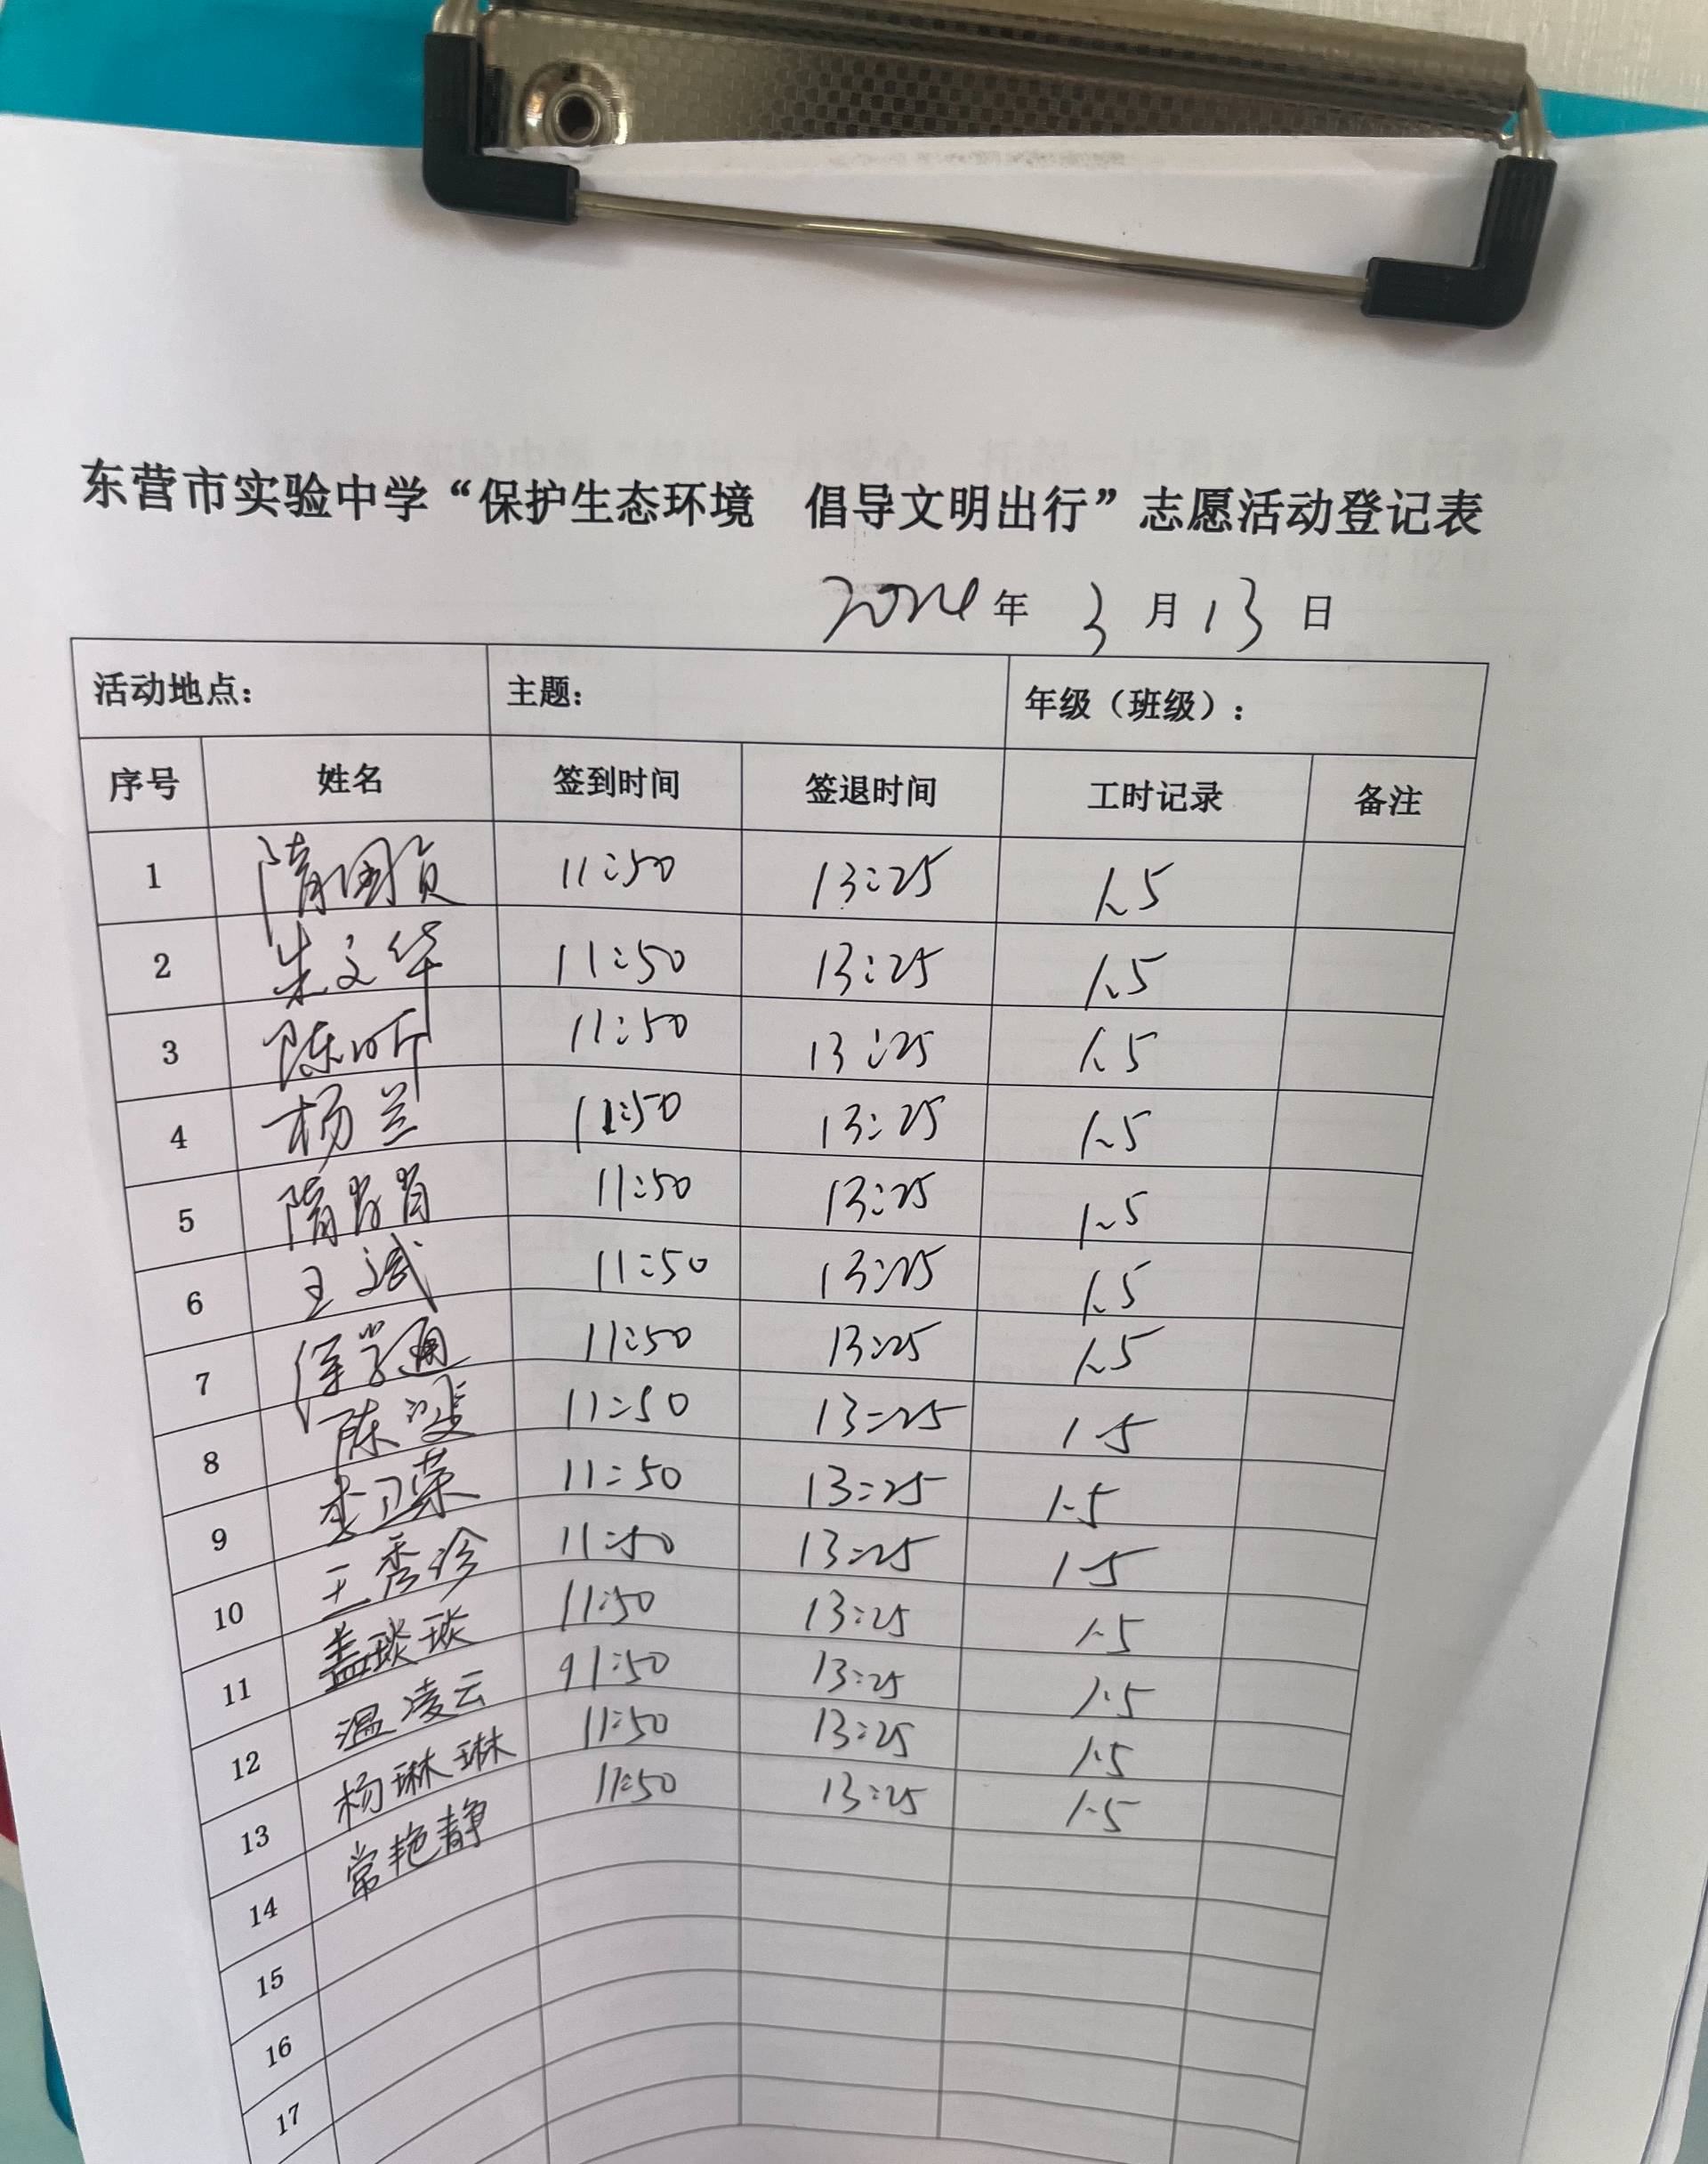 东营市实验中学“保护生态环境 倡导文明出行”志愿活动登记表
2024年 3 月 13 日
活动地点: 主题: 年级（班级）:
序号 姓名 签到时间 签退时间 工时记录 备注
1 11:50 13:25 1.5
2 朱文华 11:50 13:25 1.5
3 陈昕 11:50 13:25 1.5
4 杨兰 11:50 13:25 1.5
5 11:50 13:25 1.5
6 王斌 11:50 13:25 1.5
7 11:50 13:25 1.5
8 11:50 13:25 1.5
9 李卫荣 11:50 13:25 1.5
10 王秀珍 11:50 13:25 1.5
11 盖琰琰 11:50 13:25 1.5
12 温凌云 11:50 13:25 1.5
13 杨琳琳 11:50 13:25 1.5
14 常艳静 11:50 13:25 1.5
15
16
17